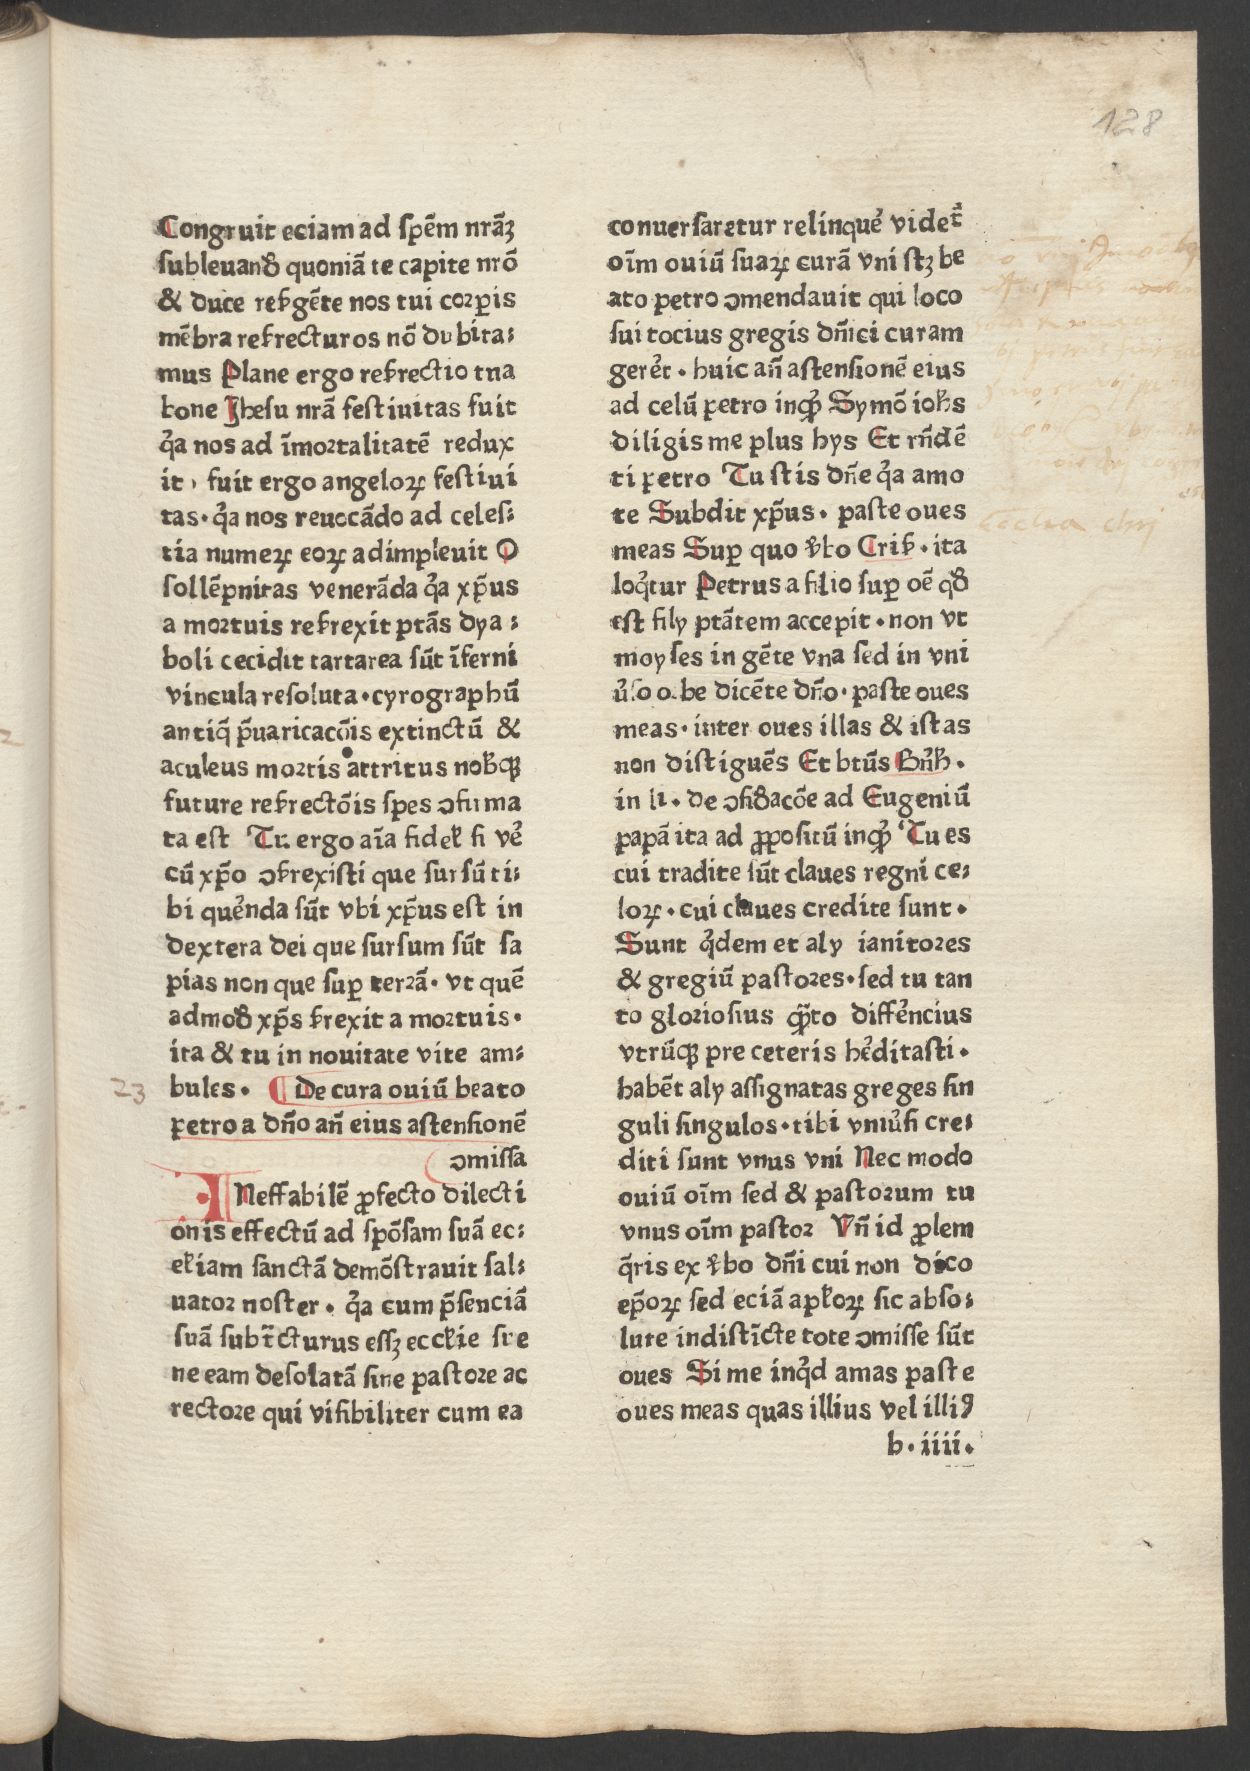 128
Congruit eciam ad spēm nrāꝫ
subleuand̄ quoniā te capite nrō
& duce resᷣgēte nos tui corꝑis
mēbra resᷣrecturos nō dubita⸗
mus Plane ergo resᷣrectio tua
bone Jhesu nrā festiuitas fuit
qᷓa nos ad īmortalitatē redux
it, fuit ergo angeloꝝ festiui
tas · qᷓa nos reuocādo ad celes⸗
tia numeꝝ eoꝝ adimpleuit O
sollēpnitas venerāda qᷓa xp̄us
a mortuis resᷣrexit ptās dya⸗
boli cecidit tartarea sūt īferni
vincula resoluta · cyrographū
antiq̄ p̄uaricacōis extinctū &
aculeus mortis attritus nob̄qꝫ
future resᷣrectōis spes ↄfirma
ta est Tu ergo aīa fidelᷣ si vē
cū xp̄o ↄsᷣrexisti que sursū ti⸗
bi quēnda sūt vbi xp̄us est in
dextera dei que sursum sūt sa
pias non que suꝑ terrā · vt quē
admod̄ xp̄s sᷣrexit a mortuis ·
ita & tu in nouitate vite am⸗
23
bules · De cura ouiū beato
petro a dn̄o an̄ eius astensionē
ↄmissa
INeffabilē ꝓfecto dilecti
onis effectū ad spōsam suā ec⸗
clᷣiam sanctā demōstrauit sal⸗
uator noster · qᷓa cum p̄senciā
suā subt̄cturus essꝫ ecclᷣie sue
ne eam desolatā sine pastore ac
rectore qui visibiliter cum ea
conuersaretur relinque᷒ videt᷒
oīm ouiū suaꝝ curā vni stꝫ be
ato petro ↄmendauit qui loco
sui tocius gregis dn̄ici curam
gere᷒t · huic an̄ astensionē eius
ad celū petro inqͥᷓ Symō ioh̄s
diligis me plus hys Et rn̄dē
ti petro Tu scis dn̄e qᷓa amo
te Subdit xp̄us · paste oues
meas Suꝑ quo v̄bo Crisᷣ · ita
loqͥtur Petrus a filio suꝑ oē qd̄
est fily ptātem accepit · non vt
moyses in gēte vna sed in vni
u᷒so orbe dicēte dn̄o · paste oues
meas · inter oues illas & istas
non distiguēs Et btūs Bn̄h ·
in li · de ↄsid̄acōe ad Eugeniū
papā ita ad ꝓpositū inqͥᷓ Tu es
cui tradite sūt claues regni ce⸗
loꝝ · cui claues credite sunt ·
Sunt qͥdem et aly ianitores
& gregiū pastores · sed tu tan
to gloriosius qᷓto diffe᷒ncius
vtrūqꝫ pre ceteris he᷒ditasti ·
habēt aly assignatas greges sin
guli singulos · tibi vniu᷒si cre⸗
diti sunt vnus vni Nec modo
ouiū oīm sed & pastorum tu
vnus oīm pastor Vn̄ id ꝓlem
q̄ris ex v̄bo dn̄i cui non dico
ep̄oꝝ sed eciā aplᷣoꝝ sic abso⸗
lute indistīcte tote ↄmisse sūt
oues Si me inqͥd amas paste
oues meas quas illius vel illiꝰ
b · iiii ·